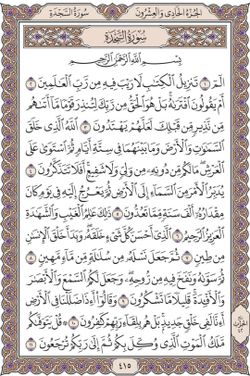 الجزء الحادي والعشرون سورة السجدة
سورة السجدة
بسم الله الرحمن الرحيم
الٓمٓ ١ تَنزِيلُ ٱلْكِتَٰبِ لَا رَيْبَ فِيهِ مِن رَّبِّ ٱلْعَٰلَمِينَ ٢
أَمْ يَقُولُونَ ٱفْتَرَىٰهُ بَلْ هُوَ ٱلْحَقُّ مِن رَّبِّكَ لِتُنذِرَ قَوْمًا مَّآ أَتَىٰهُم
مِّن نَّذِيرٍ مِّن قَبْلِكَ لَعَلَّهُمْ يَهْتَدُونَ ٣ ٱللَّهُ ٱلَّذِى خَلَقَ
ٱلسَّمَٰوَٰتِ وَٱلْأَرْضَ وَمَا بَيْنَهُمَا فِى سِتَّةِ أَيَّامٍ ثُمَّ ٱسْتَوَىٰ عَلَى
ٱلْعَرْشِ مَا لَكُم مِّن دُونِهِۦ مِن وَلِىٍّ وَلَا شَفِيعٍ أَفَلَا تَتَذَكَّرُونَ ٤
يُدَبِّرُ ٱلْأَمْرَ مِنَ ٱلسَّمَآءِ إِلَى ٱلْأَرْضِ ثُمَّ يَعْرُجُ إِلَيْهِ فِى يَوْمٍ كَانَ
مِقْدَارُهُۥٓ أَلْفَ سَنَةٍ مِّمَّا تَعُدُّونَ ٥ ذَٰلِكَ عَٰلِمُ ٱلْغَيْبِ وَٱلشَّهَٰدَةِ
ٱلْعَزِيزُ ٱلرَّحِيمُ ٦ ٱلَّذِىٓ أَحْسَنَ كُلَّ شَىْءٍ خَلَقَهُۥ وَبَدَأَ خَلْقَ ٱلْإِنسَٰنِ
مِن طِينٍ ٧ ثُمَّ جَعَلَ نَسْلَهُۥ مِن سُلَٰلَةٍ مِّن مَّآءٍ مَّهِينٍ ٨
ثُمَّ سَوَّىٰهُ وَنَفَخَ فِيهِ مِن رُّوحِهِۦ وَجَعَلَ لَكُمُ ٱلسَّمْعَ وَٱلْأَبْصَٰرَ
وَٱلْأَفْـِٔدَةَ قَلِيلًا مَّا تَشْكُرُونَ ٩ وَقَالُوٓا۟ أَءِذَا ضَلَلْنَا فِى ٱلْأَرْضِ
أَءِنَّا لَفِى خَلْقٍ جَدِيدٍۭ بَلْ هُم بِلِقَآءِ رَبِّهِمْ كَٰفِرُونَ ١٠ قُلْ يَتَوَفَّىٰكُم
مَّلَكُ ٱلْمَوْتِ ٱلَّذِى وُكِّلَ بِكُمْ ثُمَّ إِلَىٰ رَبِّكُمْ تُرْجَعُونَ ١١
٤١٥